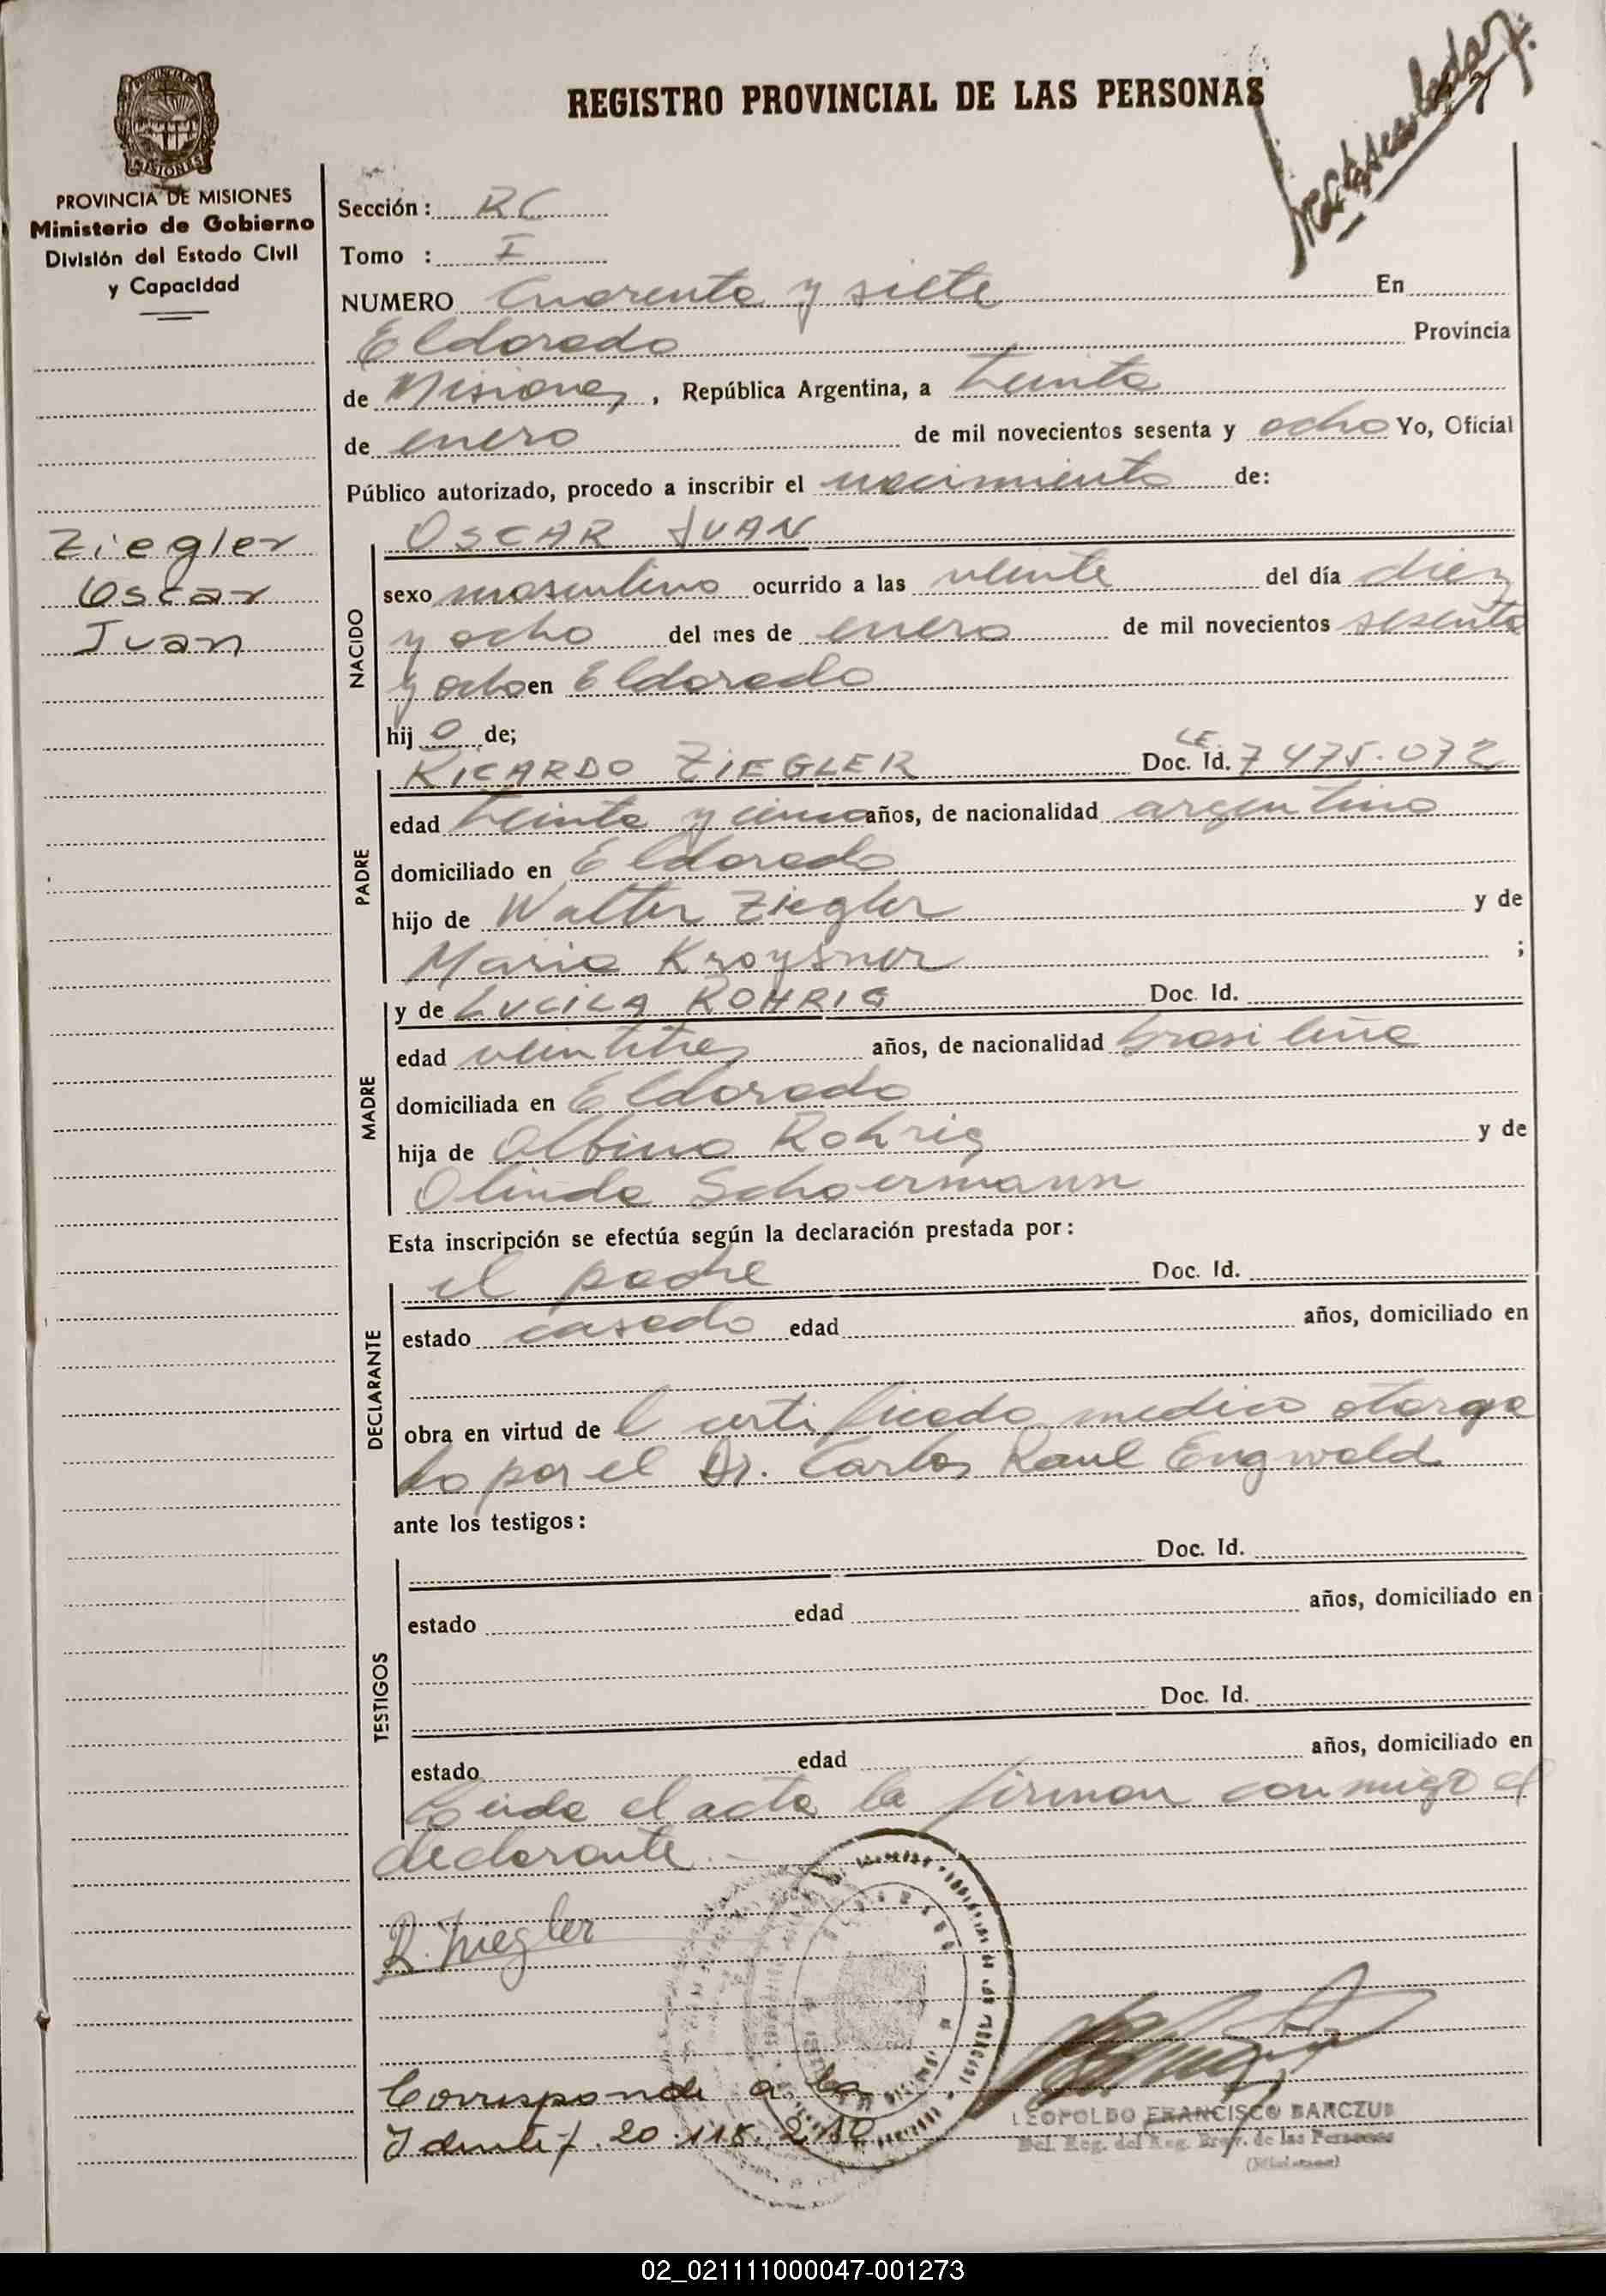 REGISTRO PROVINCIAL DE LAS PERSONAS
PROVINCIA DE MISIONES
MISIONES
PROVINCIA DE MISIONES
Ministerio de Gobierno
División del Estado Civil
y Capacidad
Ziegler
Oscar
Juan
Sección: RC
Tomo : I
NUMERO Cuarenta y siete En
Eldorado Provincia
de Misiones, República Argentina, a treinta
de enero de mil novecientos sesenta y ocho Yo, Oficial
Público autorizado, procedo a inscribir el nacimiento de:
OSCAR JUAN
NACIDO
sexo masculino ocurrido a las veinte del día diez
y ocho del mes de enero de mil novecientos sesenta
y ocho en Eldorado
hij o de;
RICARDO ZIEGLER Doc. Id. LE 7475.072
PADRE
edad treinta y cinco años, de nacionalidad argentino
domiciliado en Eldorado
hijo de Walter Ziegler y de
Maria Kroysner ;
y de LUCILA ROHRIG Doc. Id.
MADRE
edad veintitres años, de nacionalidad brasileña
domiciliada en Eldorado
hija de Albino Rohrig y de
Olinda Schoermann
Esta inscripción se efectúa según la declaración prestada por:
el padre Doc. Id.
DECLARANTE
estado casado edad años, domiciliado en
obra en virtud de l certificado medico otorga
do por el Dr. Carlos Raul Engwald
ante los testigos:
Doc. Id.
TESTIGOS
estado edad años, domiciliado en
Doc. Id.
estado edad años, domiciliado en
Leida el acta la firman conmigo el
declarante.-
R. Ziegler
Corresponde a la
Identif. 20.118.210
LEOPOLDO FRANCISCO BARCZUB
Del. Reg. del Reg. Prov. de las Personas
02_021111000047-001273